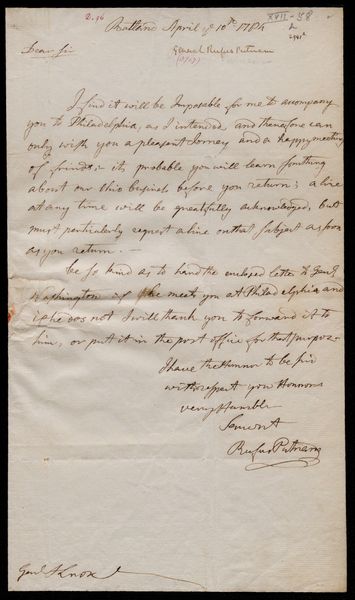 2.16
XVII-58
Rutland April ye 10th 1784
General Rufus Putnam
Dear Sir
I find it will be Imposable for me to accompany
you to Philadelphia, as I intended and therefore can
only wish you a pleasent Jorney and a happy meeting
of friends - its probable you will learn somthing
about our Ohio busniss before you return; a line
at any time will be greatfully acknowledged, but
must particularly request a line on that subject as soon
as you return —
be so kind as to hand the enclosed letter to Genl
Washington if he meets you at Philadelphia and
if he does not I will thank you to forward it to
him, or put it in the post office for that purpose
I have the Honnor to be Sir
with respect your Honnors
very Humble
Servent
Rufus Putnam
Genl Knox